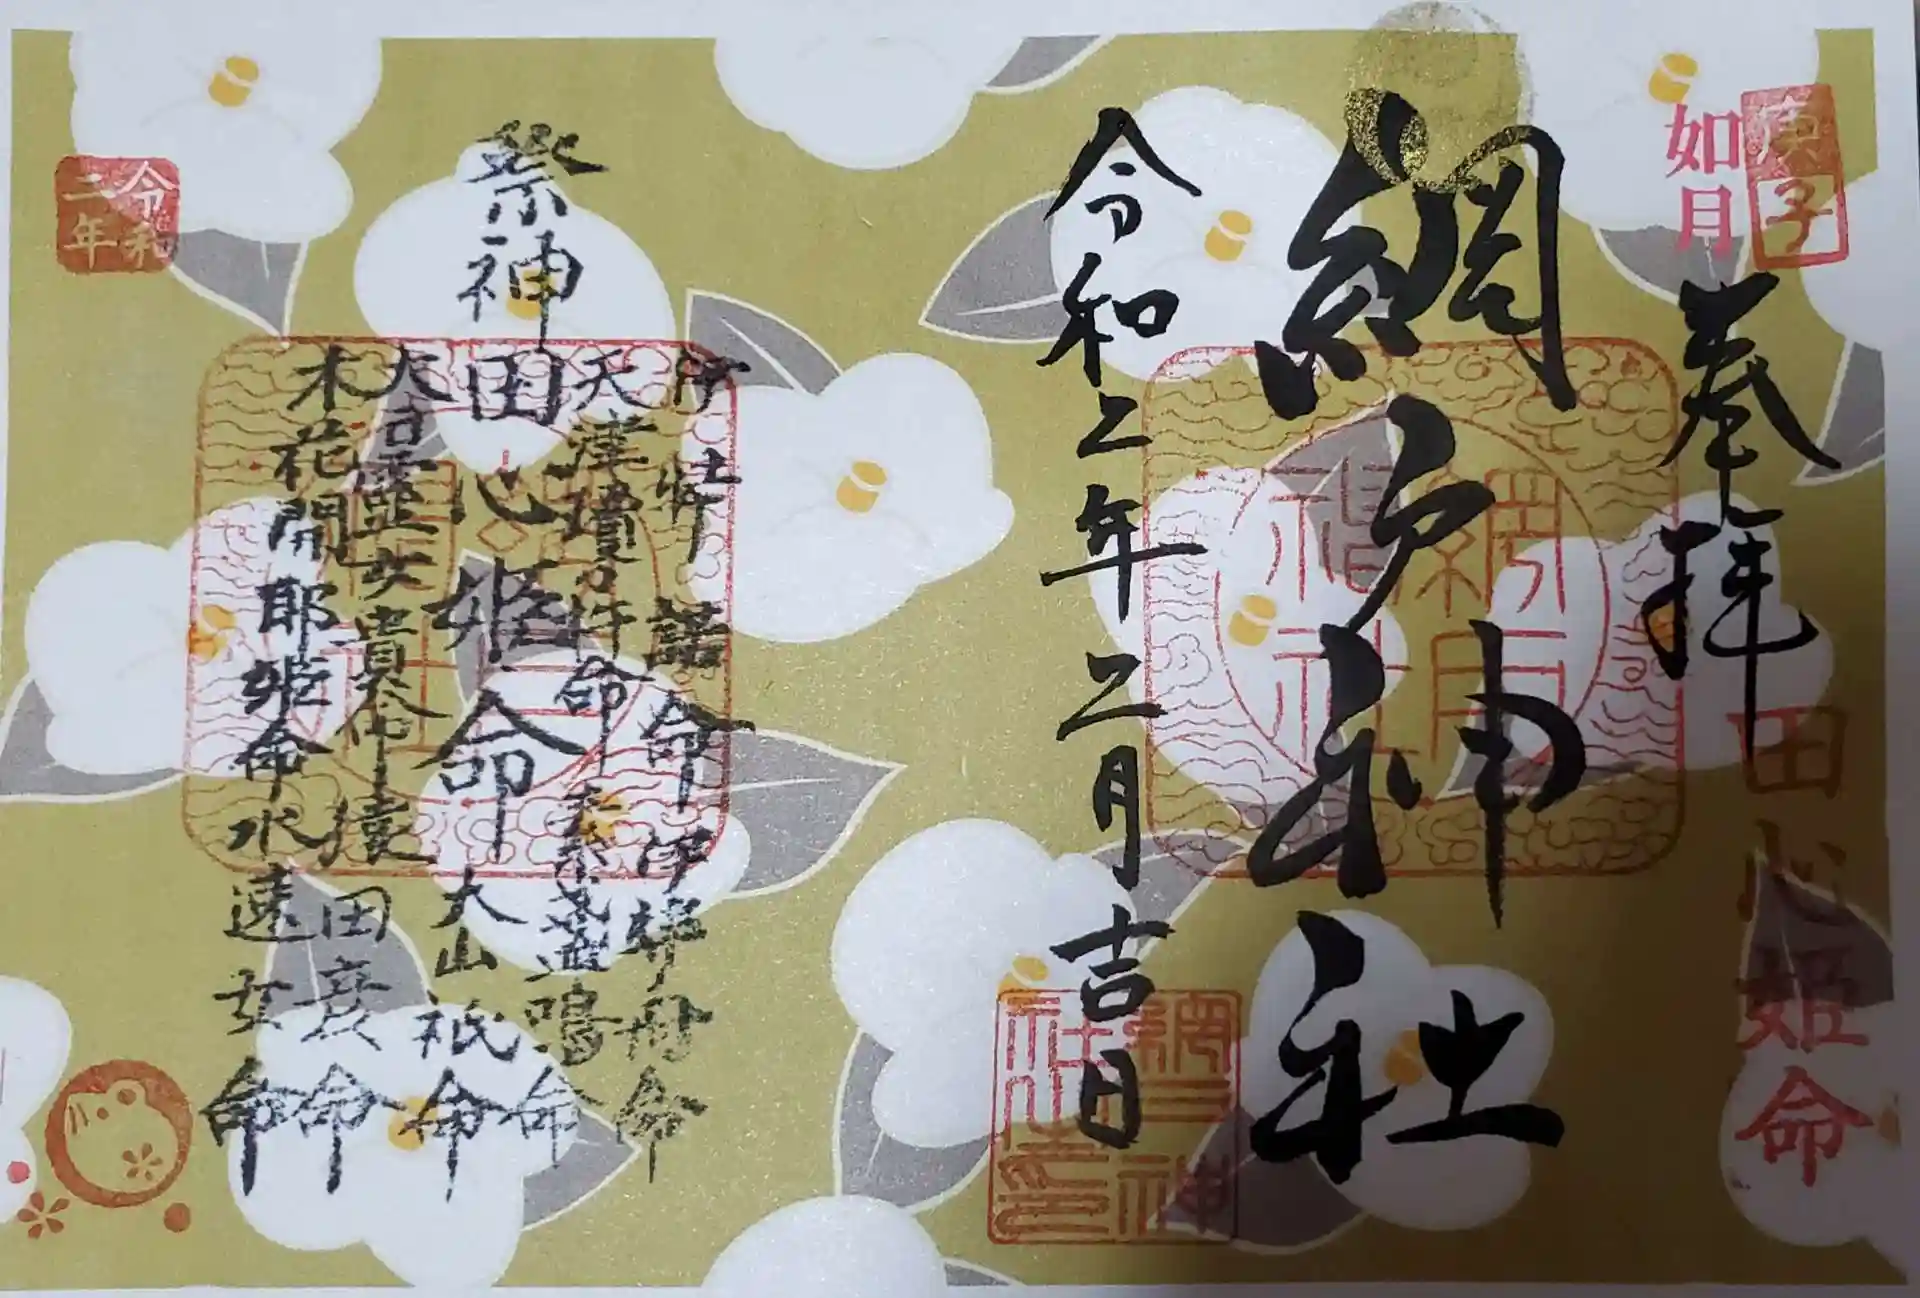 庚子
如月
奉拝
田心姫命
網戸神社
令和二年二月吉日
網戸神社
網戸神社之印
祭神
伊弉諾命 伊弉冊命
天津瓊々杵命 素盞鳴命
田心姫命 大山祇命
大日霊女貴命 猿田彦命
木花開耶姫命 水速女命
令和
二年